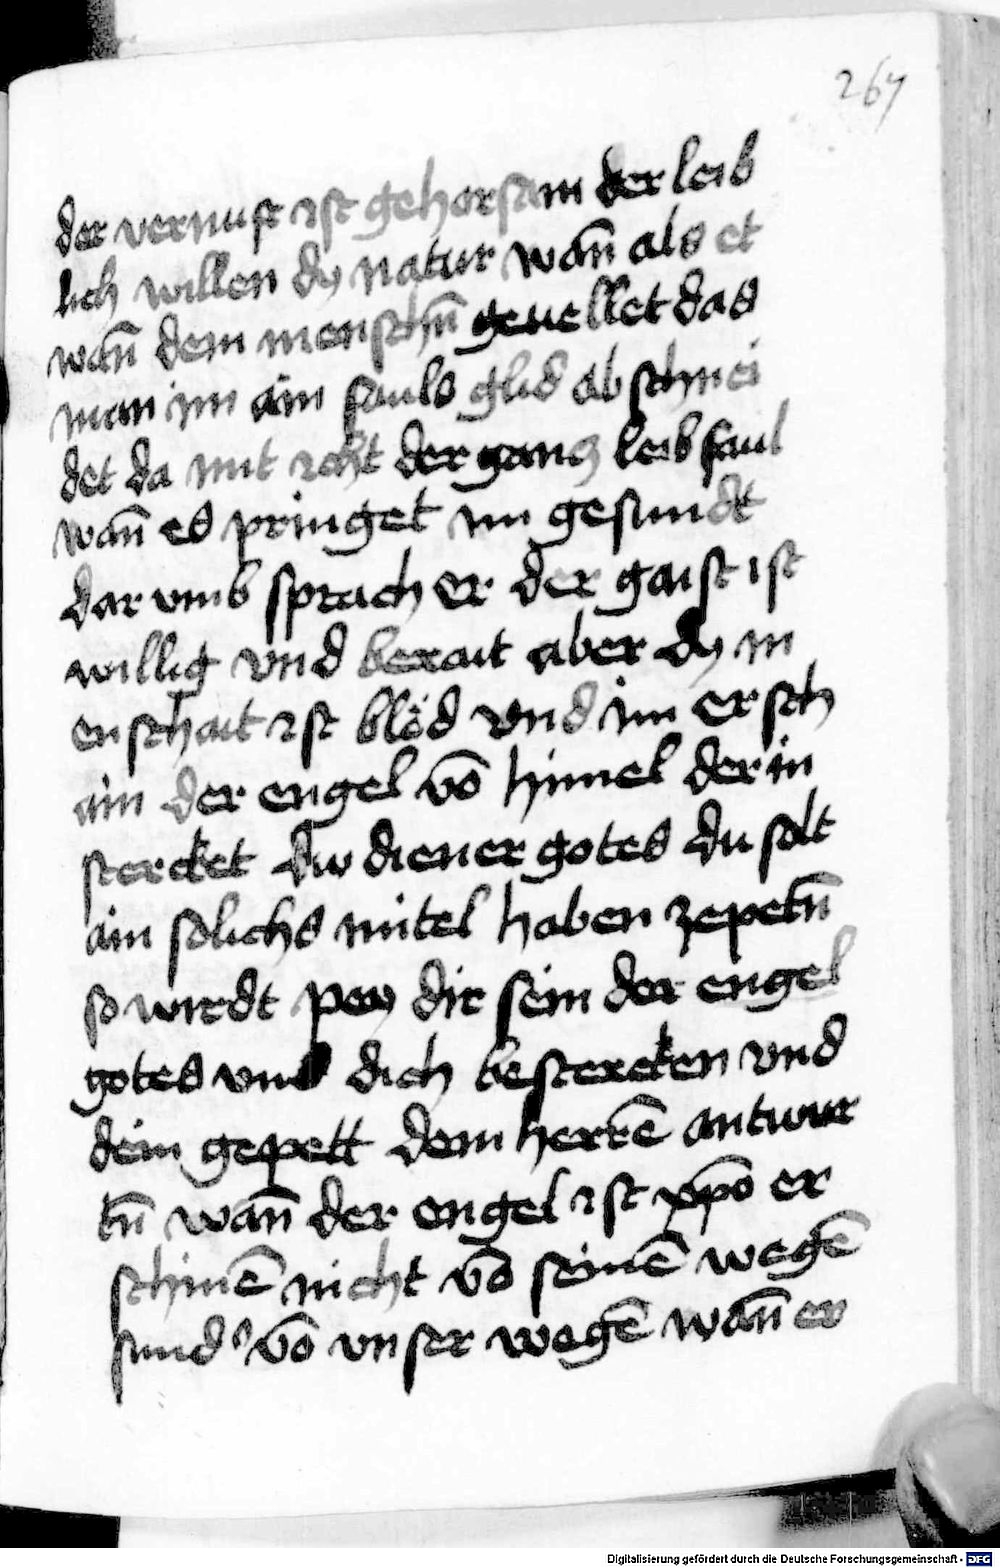 267
der vernuft ist gehorsam der leib
lich willen dy natur wan̄ als et
wan̄ dem menschn̄ geuellet das
man im ain fauls glid ab schnei
det da mit icht der gancz leib faul
wan̄ es pringet im gesundt
dar vmb sprach er der gaist ist
willig vnd berait aber dy m
enschait ist blöd vnd im ersch
ain der engel vō himel der in
stercket dw diener gotes du solt
ain solichs mitel haben ze petn̄
so wirdt pey dir sein der engel
gotes vnd dich bestercken vnd
dein gepett dem herrē antwur
tn̄ wan̄ der engel ist xp̄o er
schinē nicht vō seinē wegē
sund' vō vnser wegē wan̄ er
Digitalisierung gefördert durch die Deutsche Forschungsgemeinschaft - DFG